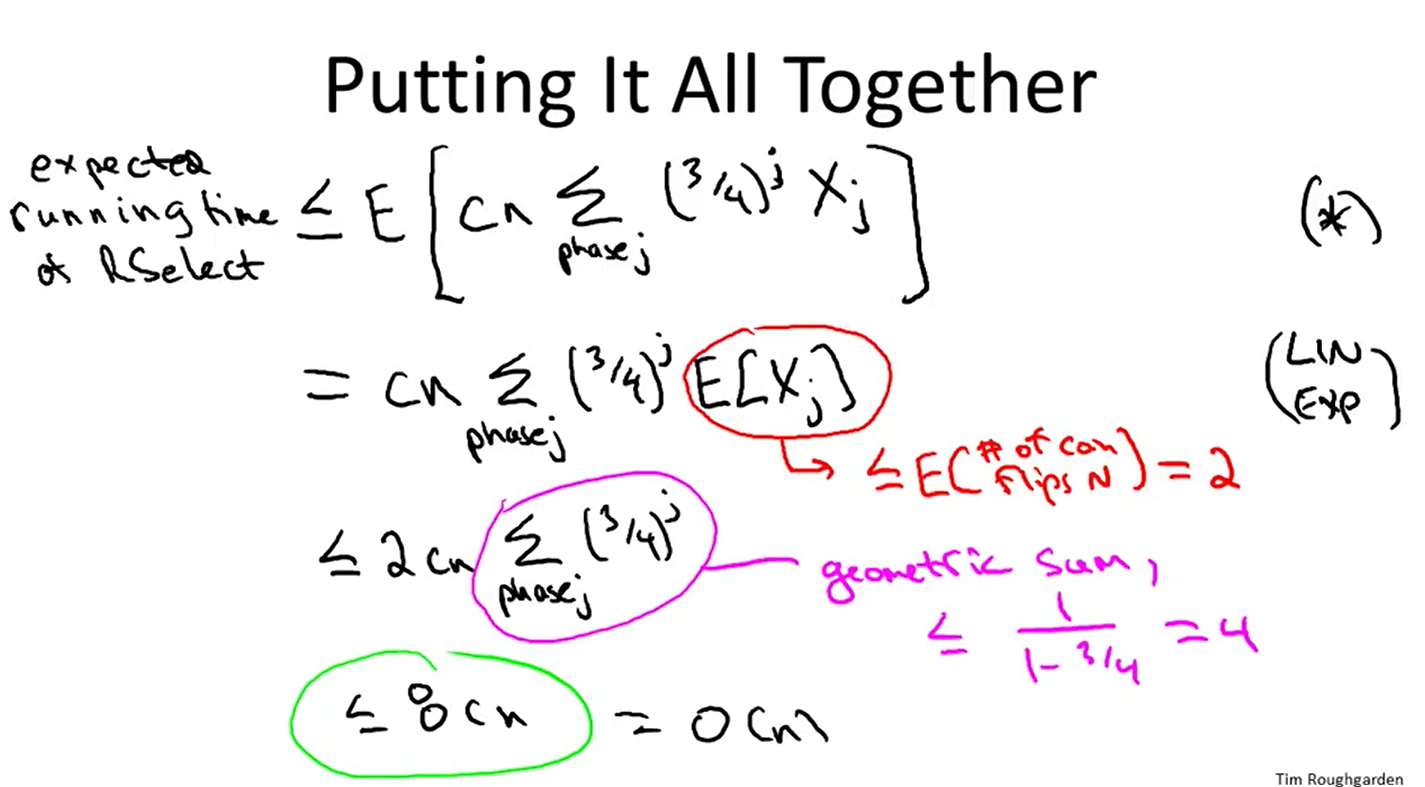 Putting It All Together
expected
running time
of RSelect
≤ E [ cn ∑ (3/4)^j X_j ] (*)
phase j
= cn ∑ (3/4)^j E[X_j] (LIN EXP)
phase j
≤ E(# of coin flips N) = 2
≤ 2cn ∑ (3/4)^j
phase j
geometric sum,
≤ 1/(1-3/4) = 4
≤ 8cn = O(n)
Tim Roughgarden